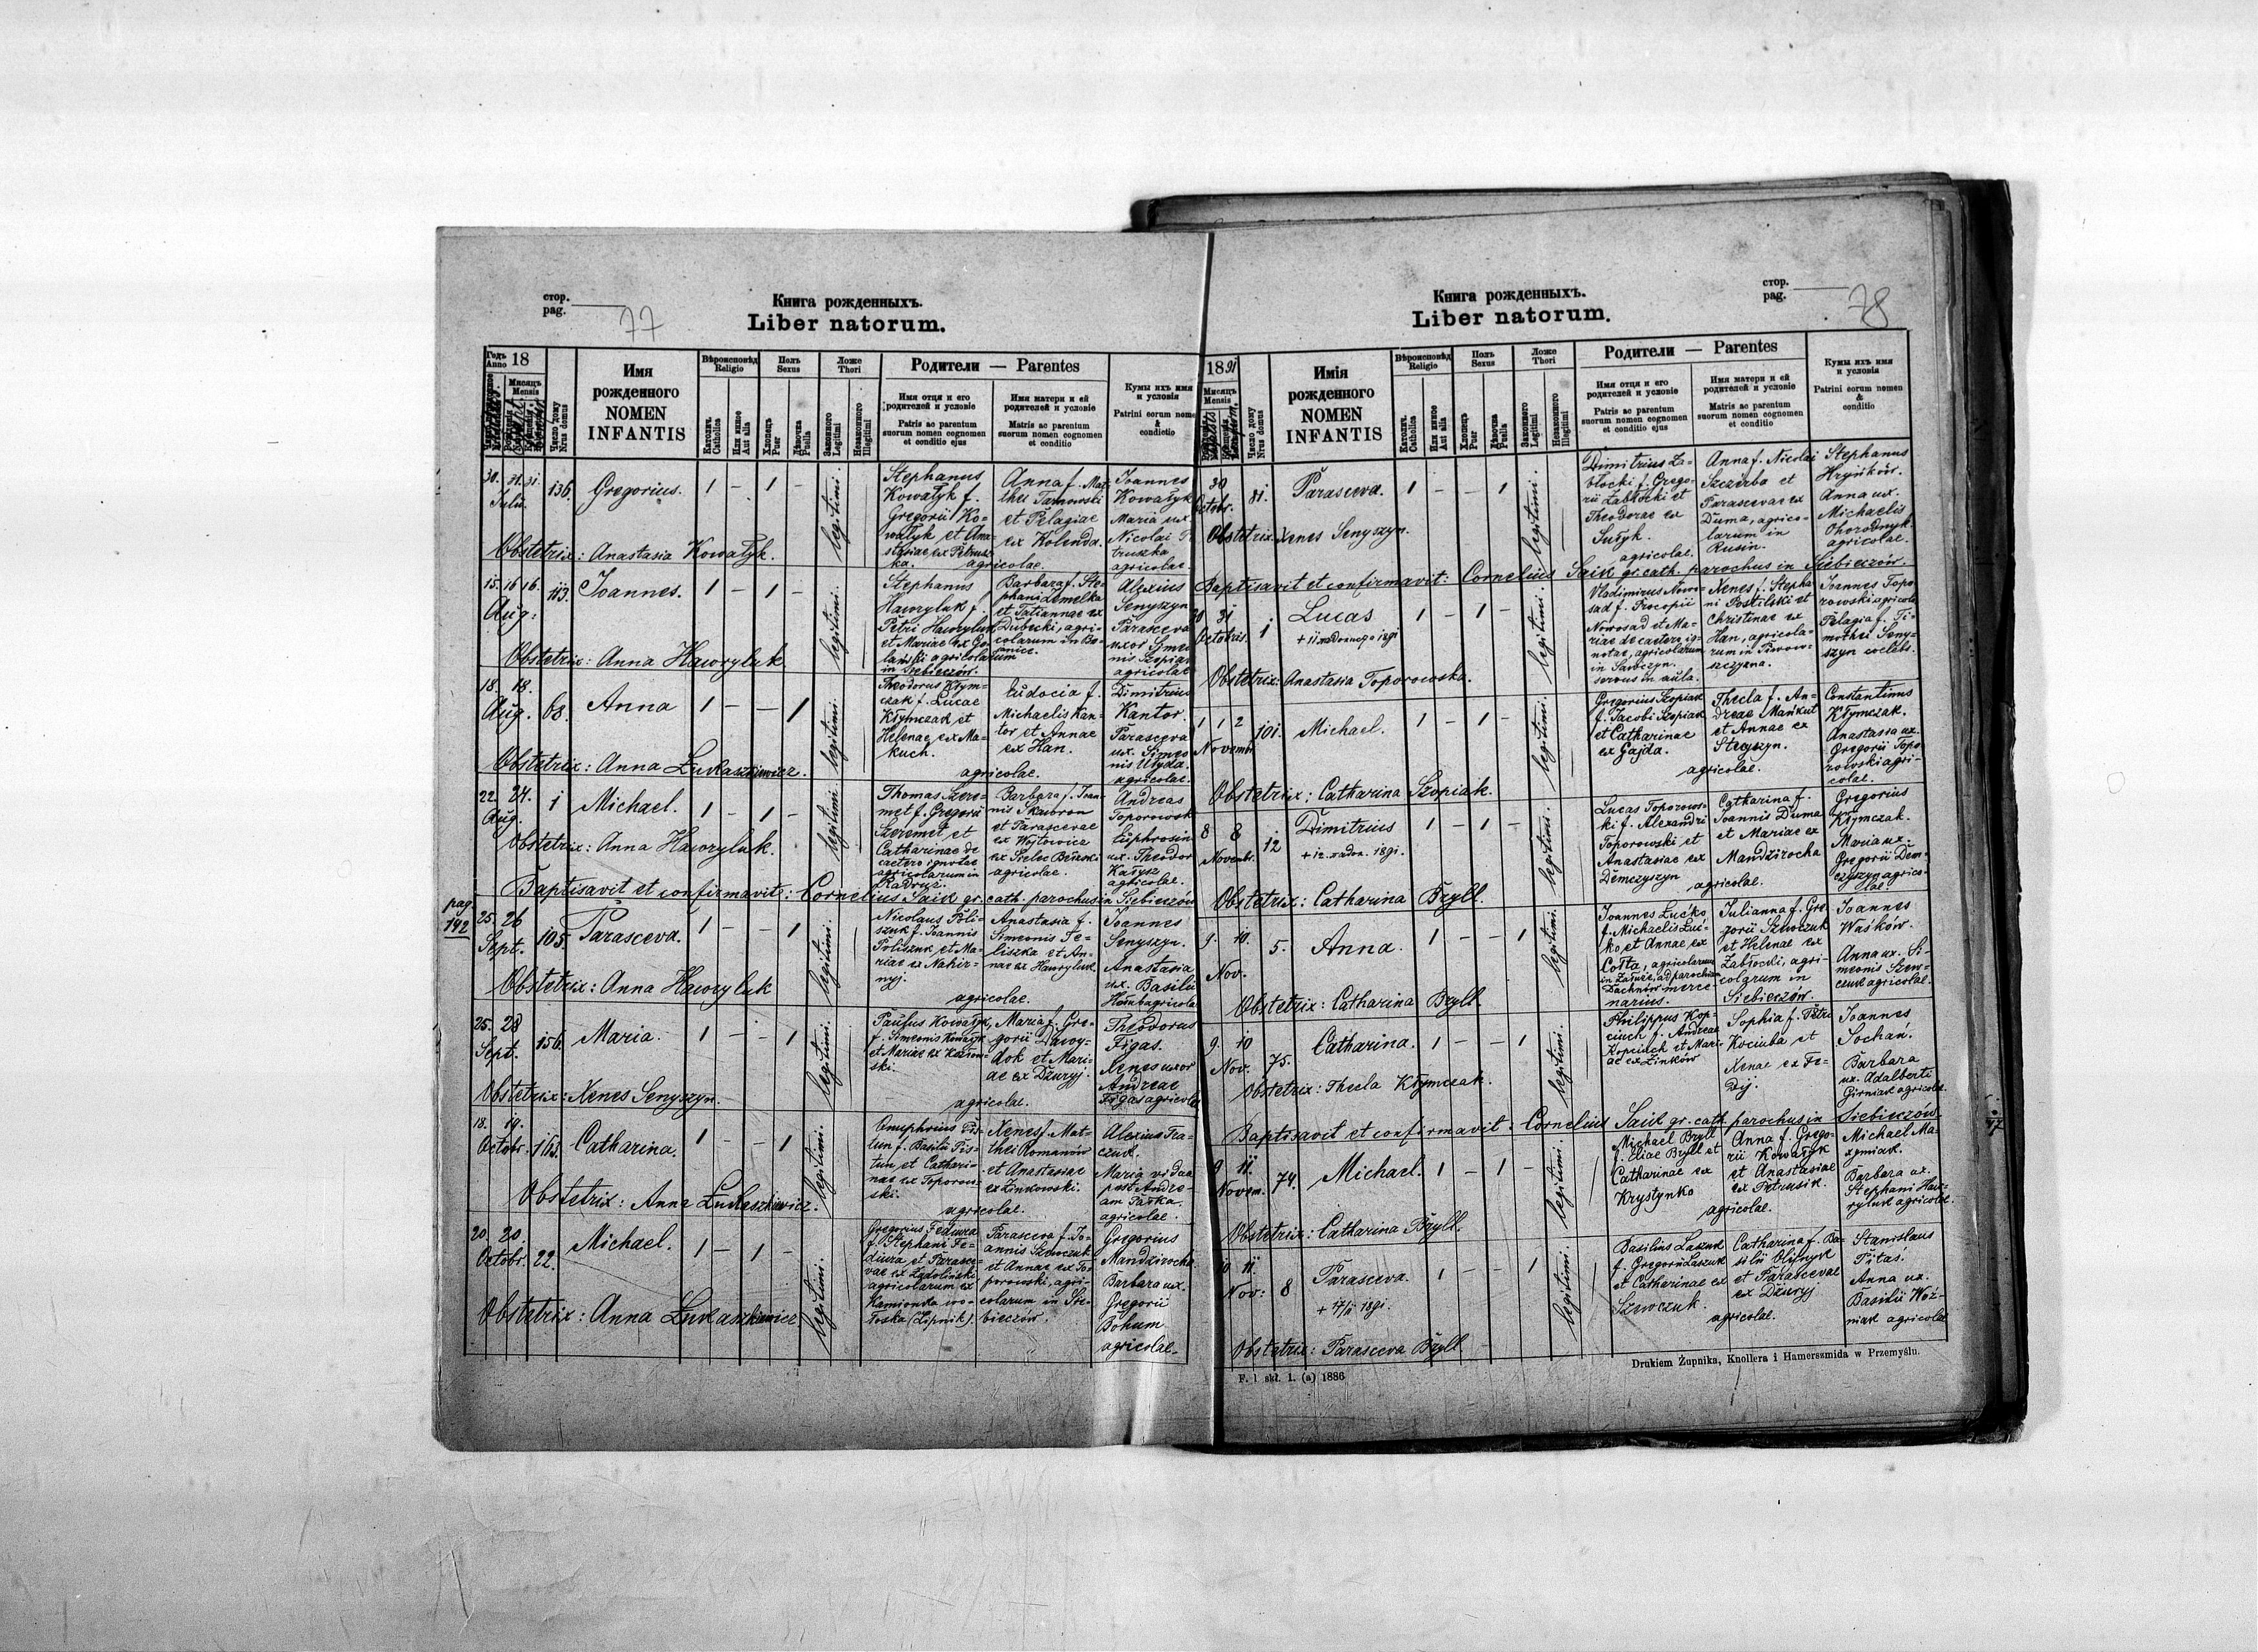 стор.
pag. 77
Книга рожденныхъ.
Liber natorum.
Годъ
Anno 18
Мисяцъ
Mensis
Число дому
Nrus domus
Имя
рожденного
NOMEN
INFANTIS
Вѣроисповѣд
Religio
Католъ.
Catholica
Или инное
Aut alia
Полъ
Sexus
Хлопецъ
Puer
Дѣвочка
Puella
Ложе
Thori
Законного
Legitimi
Незаконного
Illegitimi
Родители — Parentes
Имя отця и его
родителей и условіе
Patris ac parentum
suorum nomen cognomen
et conditio ejus
Имя матери и ей
родителей и условіе
Matris ac parentum
suorum nomen cognomen
et conditio
Кумы ихъ имя
и условія
Patrini eorum nomen
&
condictio
30. 31. 31.
Julii.
136.
Gregorius.
1 - 1 -
legitimi.
Stephanus
Kowałyk f.
Gregorii Ko-
wałyk et Ana-
stasiae ex Petrusz-
ka.
Anna f. Mat-
thei Tarnowski
et Pelagiae
ex Kolenda.
agricolae.
Joannes
Kowałyk
Maria ux.
Nicolai Pe
truszka
agricolae.
Obstetrix: Anastasia Kowałyk.
15. 16 16.
Aug:
113.
Joannes.
1 - 1 -
legitimi.
Stephanus
Hawryluk f.
Petri Hawryluk
et Mariae ex Go-
lański agricolarum
in Siebieczów.
Barbara f. Ste-
phani Demelka
et Tatiannae ex
Dubecki, agri-
colarum in Bo-
Alexius
Senyszyn
Parasceva
uxor Syme
nis Szopiak
agricolae
Obstetrix: Anna Hawryluk
18. 18.
Aug. 68.
Anna
1 - - 1
legitimi.
Theodorus Kłym-
czak f. Lucae
Kłymczak et
Helenae ex Ma-
kuch.
Eudocia f.
Michaelis Kan-
tor et Annae
ex Han.
agricolae.
Dimitrius
Kantor.
Parasceva
ux. Simeo
nis Ułyda.
agricolae.
Obstetrix: Anna Łukaszkiewicz.
22. 24.
Aug. 1
Michael.
1 - 1 -
legitimi.
Thomas Szere-
met f. Gregorii
Szeremet et
Catharinae de
caetero ignotae
agricolarum in
Radruż.
Barbara f. Joan-
nis Skworon
et Parascevae
ex Wojtowicz
agricolae.
Andreas
Toporowsk
Euphrosin
ux. Theodor
Karysz
agricolae.
Obstetrix: Anna Hawryluk.
Baptisavit et confirmavit: Cornelius Saik gr. cath. parochus in Siebieczów
pag.
142
25. 26
Sept. 105.
Parasceva.
1 - - 1
legitimi.
Nicolaus Poli-
szuk f. Joannis
Poliszuk et Ma-
riae ex Nahir-
nyj.
Anastasia f.
Simeonis Te-
liszka et An-
nae ex Hawryluk.
agricolae.
Joannes
Senyszyn.
Anastasia
ux. Basilii
Homb agricola
Obstetrix: Anna Hawryluk
25. 28
Sept. 156.
Maria.
1 - - 1
legitimi.
Paulus Kowałyk,
f. Simeonis Kowałyk
et Mariae ex
ski.
Maria f. Gre-
gorii Dawy-
dok et Mari-
ae ex Dżuryj.
agricolae.
Theodorus
Figas.
Xenes uxor
Andreae
Figas agricola
Obstetrix: Xenes Senyszyn.
18. 19.
Octobr. 163.
Catharina.
1 - - 1
legitimi.
Onuphrius Pis-
tun f. Basilii Pis-
tun, et Cathari-
nae ex Toporow-
ski.
Xenes f. Mat-
thei Romanów
et Anastasiae
ex Zinkowski.
agricolae.
Alexius Tka-
czuk.
Maria vidua
post Andre-
am Paśka
agricolae.
Obstetrix: Anna Łukaszkiewicz.
20. 20.
Octobr. 22.
Michael.
1 - 1 -
legitimi.
Gregorius Fediura
f. Stephani Fe-
diura, et Parasce-
vae ex Zadoliński
agricolarum ex
Kamionka wo-
łoska (Lipnik).
Parasceva f. Jo-
annis Szewczuk
et Annae ex To-
porowski, agri-
colarum in Sie-
bieczów.
Gregorius
Mandzirocha
Barbara ux.
Gregorii
Bohum
agricolae.
Obstetrix: Anna Łukaszkiewicz
стор.
pag. 78
Книга рожденныхъ.
Liber natorum.
1891
Мисяцъ
Mensis
Число дому
Nrus domus
Имія
рожденного
NOMEN
INFANTIS
Вѣроисповѣд
Religio
Католъ.
Catholica
Или инное
Aut alia
Полъ
Sexus
Хлопецъ
Puer
Дѣвочка
Puella
Ложе
Thori
Законного
Legitimi
Незаконного
Illegitimi
Родители — Parentes
Имя отця и его
родителей и условіе
Patris ac parentum
suorum nomen cognomen
et conditio ejus
Имя матери и ей
родителей и условіе
Matris ac parentum
suorum nomen cognomen
et conditio
Кумы ихъ имя
и условія
Patrini eorum nomen
&
conditio
30
Octobr. 81.
Parasceva.
1 - - 1
legitimi.
Dimitrius Za-
błocki f. Grego-
rii Zabłocki et
Theodorae ex
Suryk.
agricolae.
Anna f. Nicolai
Szczerba et
Parascevae ex
Duma, agrico-
larum in
Rusin.
Stephanus
Hryńków.
Anna ux.
Michaelis
Ohorodnyk.
agricolae.
Obstetrix: Xenes Senyszyn.
Baptisavit et confirmavit: Cornelius Saik gr. cath. parochus in Siebieczów.
30 31
Octobris. 1
Lucas
1 - 1 -
legitimi.
Vladimirus Nowo-
sad f. Procopii
Nowosad et Ma-
riae de caetero ig-
notae, agricolarum
in Sawczyn.
servus in aula.
Xenes f. Stepha
ni Postilski et
Christinae ex
Han, agricola-
rum in Piwow-
szczyzna.
Joannes Topo
rowski agricola
Pelagia f. Ti-
mothei Seny-
szyn coelebs.
Obstetrix: Anastasia Toporowska.
1 1 2
Novembr. 101.
Michael.
1 - 1 -
legitimi.
Gregorius Szopiak
f. Jacobi Szopiak
et Catharinae
ex Gajda.
Thecla f. An-
dreae Mańkut
et Annae ex
Stecyszyn.
agricolae.
Constantinus
Kłymczak.
Anastasia ux.
Gregorii Topo-
rowski agri-
colae.
Obstetrix: Catharina Szopiak.
8 8
Novembr. 12
Dimitrius
1 - 1 -
legitimi.
Lucas Toporows-
ki f. Alexandri
Toporowski et
Anastasiae ex
Demczyszyn
Catharina f.
Joannis Duma
et Mariae ex
Mandzirocha
agricolae.
Gregorius
Kłymczak.
Maria ux.
Gregorii Dem-
czyszyn agrico-
lae
Obstetrix: Catharina Bryll.
9. 10.
Nov. 5.
Anna.
1 - - 1
legitimi.
Joannes Lućko
f. Michaelis Luć-
ko et Annae ex
Cołta, agricolarum
in Załuże, ad parochiam
Dachnów merce-
narius.
Julianna f. Gre-
gorii Szewczuk
et Helenae ex
Zabłocki, agri-
colarum in
Siebieczów.
Joannes
Waśków.
Anna ux. Si-
meonis Szew-
czuk agricolae.
Obstetrix: Catharina Bryll
9. 10
Nov. 75.
Catharina.
1 - - 1
legitimi.
Philippus Kop-
ciuch f. Andreae
Kopciuch et Mari-
ae ex Zinków
Sophia f. Petri
Kociuba et
Xenae ex Fe-
dij.
Joannes
Sochań.
Barbara
ux. Adalberti
Girniak agricolae.
Obstetrix: Thecla Kłymczak.
Baptisavit et confirmavit: Cornelius Saik gr. cath. parochus in Siebieczów
9 11
Novem. 74.
Michael.
1 - 1 -
legitimi.
Michael Bryll
f. Eliae Bryll et
Catharinae ex
Krystynko
Anna f. Grego-
rii Kowałyk
et Anastasiae
ex Petrusik.
agricolae.
Michael Ma-
xymiak.
Barbara ux.
Stephani Haw-
ryluk agricolae.
Obstetrix: Catharina Bryll.
10 11
Nov: 8
Parasceva.
+ 17/11 1891.
1 - - 1
legitimi.
Basilius Laszuk
f. Gregorii Laszuk
et Catharinae ex
Szewczuk.
Catharina f. Ba-
silii Olijnyk
et Parascevae
ex Dżuryj
agricolae.
Stanislaus
Pitaś.
Anna ux.
Basilii Woź-
niak agricolae
Obstetrix: Parasceva Bryll
F. 1 skł. 1. (a) 1886
Drukiem Żupnika, Knollera i Hamerszmida w Przemyślu.